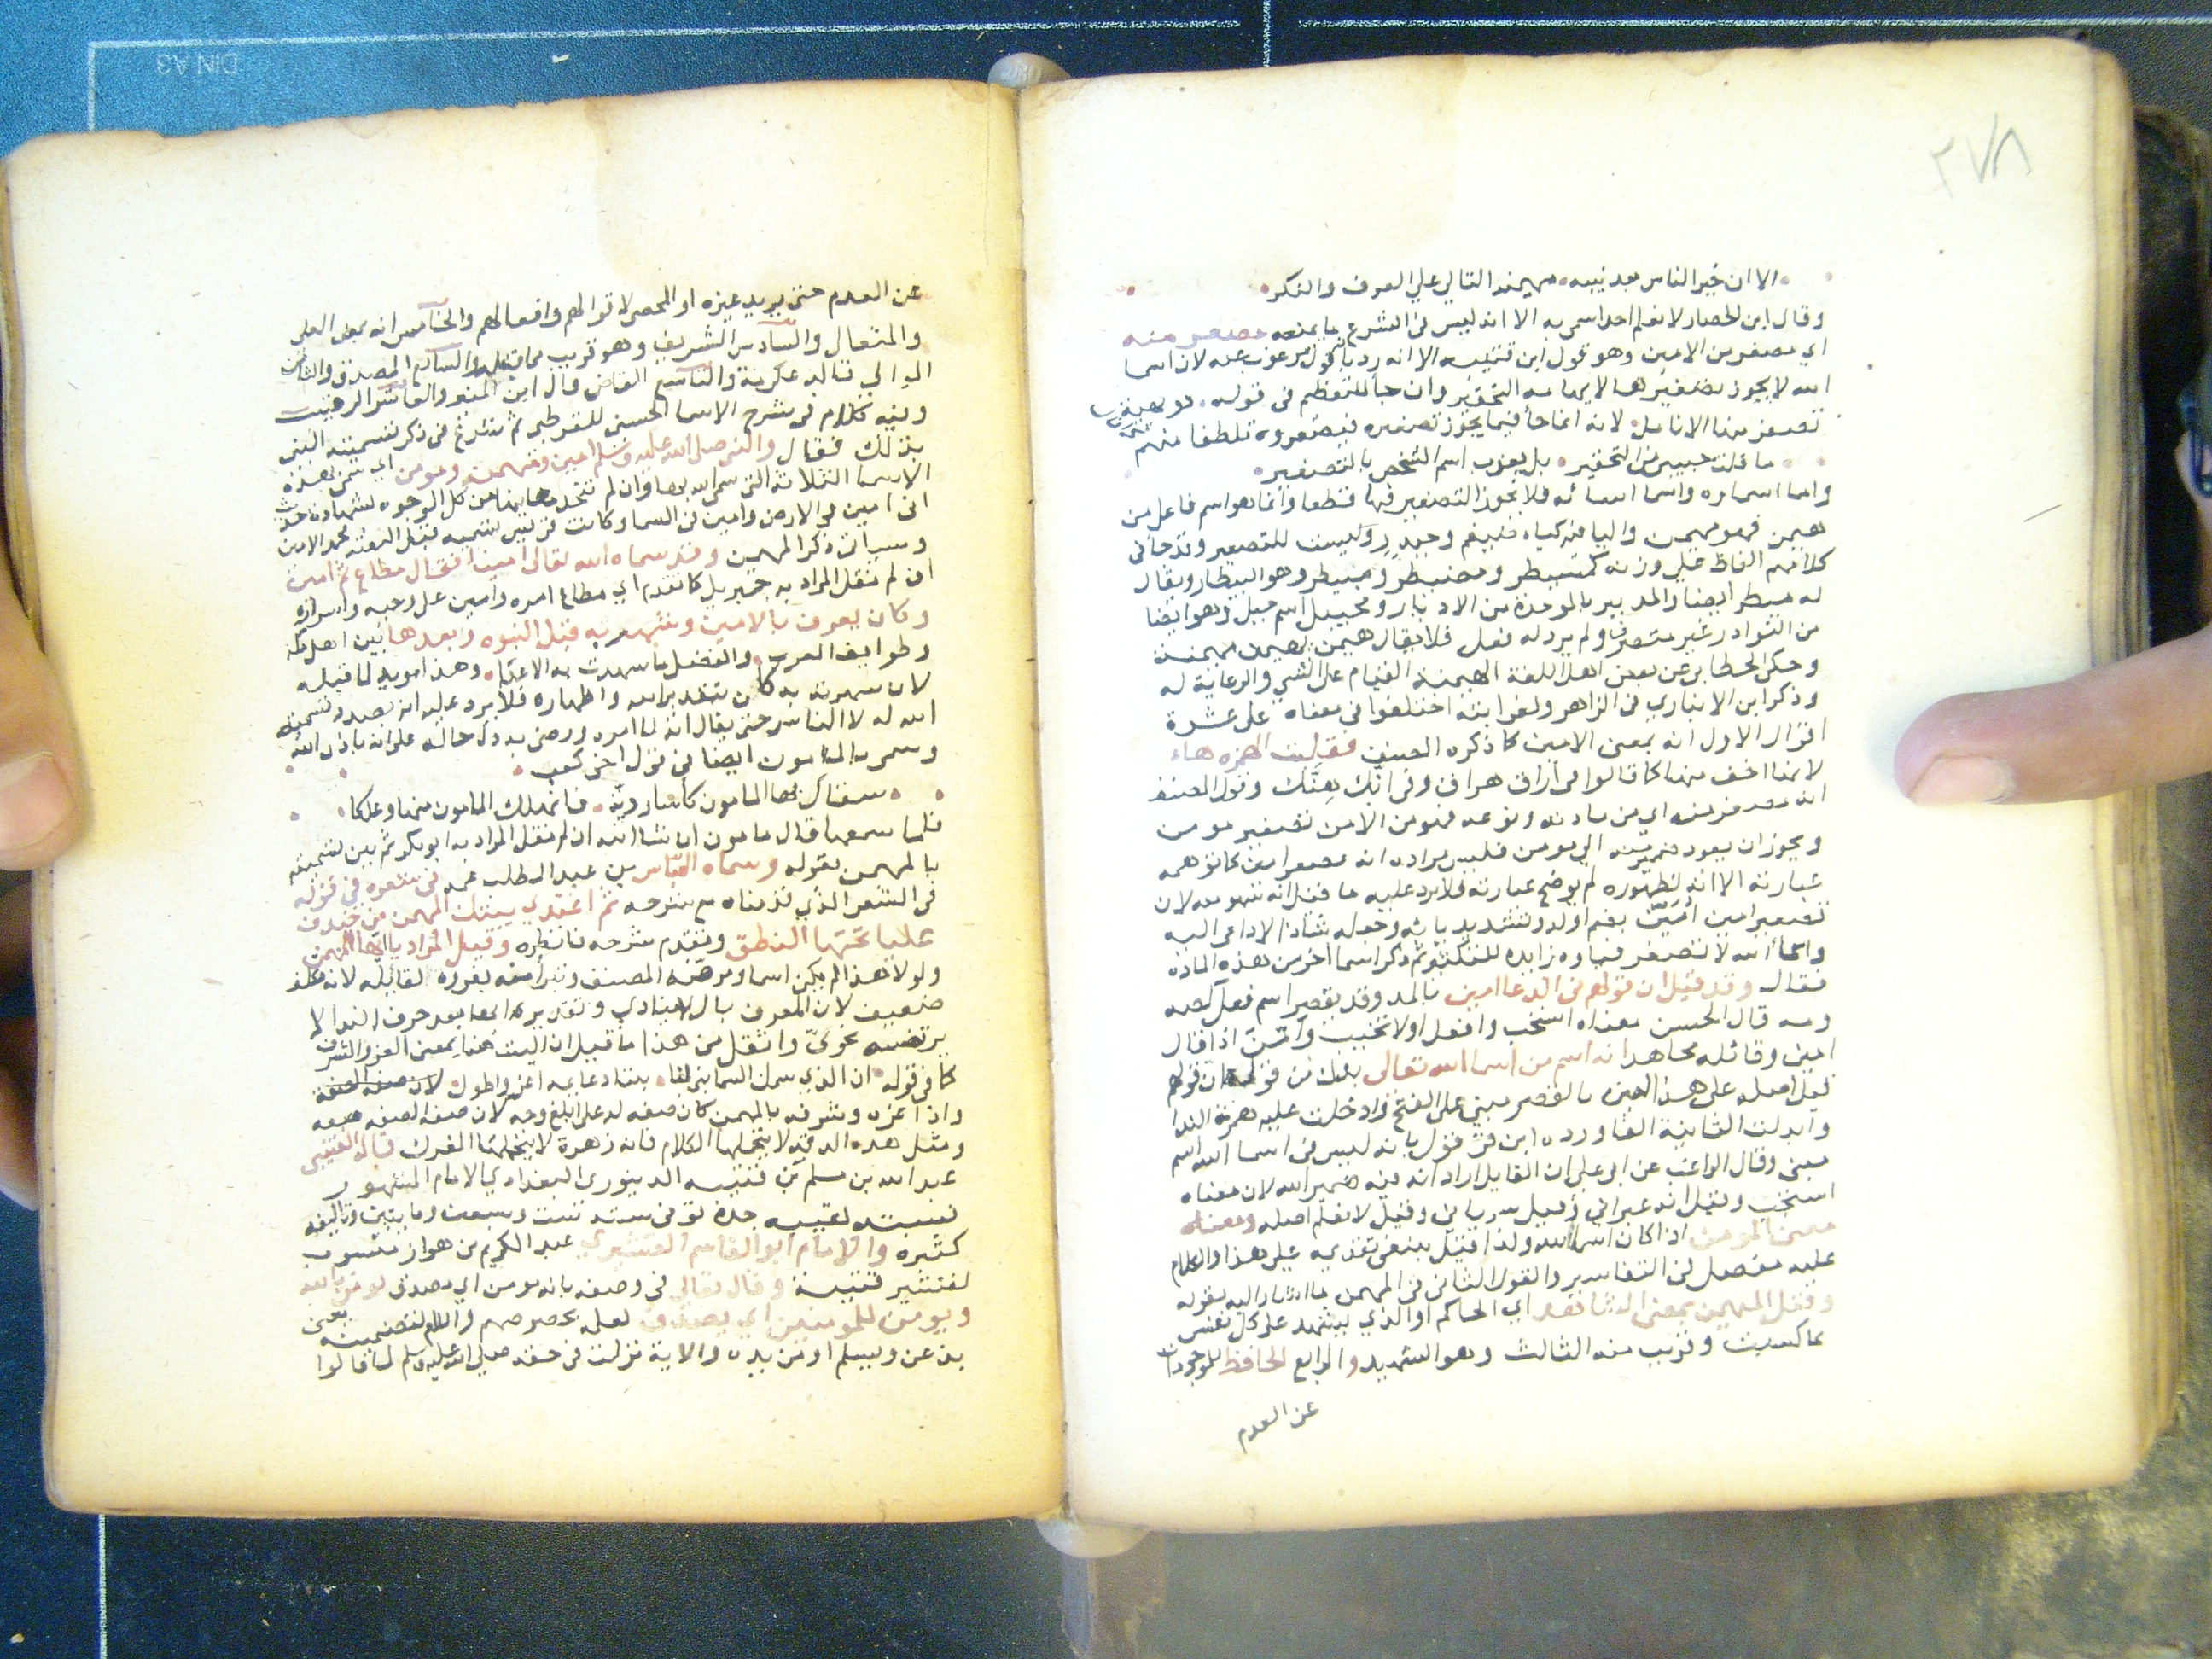 ٢٧٨
الا ان خير الناس بعد نبيه مهيمنه التالي علي العرف والنكر
وقال ابن الحصار لا نعلم احدا سمي به الا انه ليس في الشرع ما يمنعه مصغر منه
اي مصغر من الامين وهو قول ابن قتيبه الا انه رد بانه قول مرغوب عنه لان اسما
الله لا يجوز تصغيرها لايهامه التحقير وان جا للتعظيم في قوله دويهية
تصفر منها الانامل لانه انما جا فيما يجوز تصغيره فيصغروه تلطفا منهم
ما قلت حبيبي من التحقير بل يعذب اسم الشخص بالتصغير
واما اسماوه واسما انبيائه فلا يجوز التصغير فيها قطعا وانما هو اسم فاعل من
هيمن فهو مهيمن واليا فيه كياء ضيغم وحيدر وليست للتصغير وقد جا في
كلامهم الفاظ علي وزنه كمسيطر ومبيطر وهو البيطار ويقال
له مبيطر ايضا والمدبير بالموحدة من الادبار ومجيبل اسم جبل وهو ايضا
من النوادر غير متصرف ولم يرد له فعل فلا يقال هيمن يهيمن مهيمنة
وحكي الخطابي عن بعض اهل اللغة الهيمنة القيام علي الشي والرعاية له
وذكر ابن الانباري في الزاهر ولغرابته اختلفوا في معناه علي عشرة
اقوال الاول انه بمعني الامين كما ذكره المصنف فقلبت الهمزه هاء
لانها اخف منها كما قالوا في اراق هراق وفي اياك هياك وقول المصنف
انه مصغر منه اي من مادته ونوعه فهو من الامن تصغير مومن
ويجوز ان يعود ضميره الي مومن فليس مراده انه مصغر امين كما توهمه
عبارته الا انه لظهوره لم يوضح عبارته فلا يرد عليه ما قيل انه سهو منه لان
تصغير امين أُمَيّن بضم اوله وتشديد يائه وجعله شاذا لا داعي اليه
واسما الله لا تصغر فياوه زايده للتكثير ثم ذكر اسما اخر من هذه الماده
فقال وقد قيل ان قولهم في الدعا امين بالمد وقد يقصر اسم فعل
ومه قال الحسن معناه استجب وافعل اولا تخيب وأمّن اذا قال
امين وقائله مجاهد انه اسم من اسما الله تعالي
لعل اصله علي هذا امين بالقصر مبني علي الفتح فادخلت عليه همزة الندا
وابدلت الثانية الفا ورده ابن قرقول بانه ليس في اسما الله اسم
مبني وقال الراغب عن ابي علي ان القايل اراد انه فيه ضمير الله لان معناه
استجب وقيل انه عبراني وقيل سرياني وقيل لا نعلم اصله ومعناه
معني المومن اذا كان اسما لله ولذا قيل ينبغي تقديمه علي هذا والكلام
عليه مفصل في التفاسير والقول الثاني في المهيمن ما اشار اليه بقوله
وقيل المهيمن بمعني الشاهد اي الحاكم او الذي يشهد علي كل نفس
بما كسبت وقريب منه الثالث وهو الشهيد والرابع الحافظ للموجودات
عن العدم
عن العدم حتي يريد غيره او المحصي لاقوالهم وافعالهم والخامس انه بمعني العلي
والمتعال والسادس الشريف وهو قريب مما قبله والسابع المصدق والثامن
الوالي قاله عكرمة والتاسع القاضي قال ابن المنير والعاشر الرقيب
وفيه كلام في شرح الاسما الحسني للقرطبي ثم شرع في ذكر تسميته النبي
بذلك فقال والنبي صلي الله عليه وسلم امين ومهيمن ومومن اي سمي بهذه
الاسما الثلاثه التي سمي الله بها وان لم تتحد معانيها من كل الوجوه لشهادة حديث
اني امين في الارض وامين في السما وكانت قريش تسميه قبل البعثه محمد الامين
وسياتي ذكر المهيمن وقد سماه الله تعالي امينا فقال مطاع ثم امين
ان لم نقل المراد به جبريل كما تقدم اي مطاع امره وامين علي وحيه واسراره
وكان يعرف بالامين وشهر به قبل النبوه وبعدها بين اهل مكه
وطوايف العرب والفضل ما شهدت به الاعداء وهذا مويد لما قبله
لان شهرته به كان بتقدير الله واظهاره فلا يرد عليه انه بصدد تسمية
الله له لا الناس حتي يقال انه لما امره ورضي به دل حاله علي انه باذن الله
وسمي بالمامون ايضا في قول اخي كعب
سقاك بها المامون كاسا رويّة فانهلك المامون منها وعلكا
فلما سمعها قال مامون ان شا الله ان لم نقل المراد به ابو بكر ثم بين تسميته
بالمهيمن بقوله وسماه العباس بن عبد المطلب عمه في شعره في قوله
في الشعر الذي قدمناه مع شرحه ثم اغتدي بيتك المهيمن من خندف
علياء تحتها النطق وتقدم شرحه فانظره وقيل المراد يا ايها المهيمن
ولولا هذا لم يكن اسما ومرضه المصنف وتبرأ منه بعزوه لقائله لانه تكلف
ضعيف لان المعرف بال لا ينادي وتقدير ايها بعد حرف الندا لا
يرتضيه نحويّ وانتقل من هذا ما قيل ان البيت هنا بمعني العز والشرف
كما في قوله ان الذي سمك السما بني لنا بيتا دعايمه اعز واطول
واذا عزه وشرفه بالمهيمن كان صفه له علي ابلغ وجه لان صفة الصفه صفه
ومثل هذه الدقيقه لا يتحملها الكلام فانه زهرة لا يتحملها الفرك قاله القتيبي
عبد الله بن مسلم بن قتيبه الدينوري البغدادي الامام المشهور
نسبته لقتيبه جده توفي سنه ست وسبعين وماتين وتاليفه
كثيره والامام ابو القاسم القشيري عبد الكريم بن هوازن منسوب
لقشير قبيلة وقال تعالي في وصفه بانه مومن اي مصدق يومن بالله
ويومن للمومنين اي يصدق لعلمه بخلوصهم واللام لتضمينه معني
يذعن ويسلم او مزيده والاية نزلت في حقه صلي الله عليه وسلم لما قالوا